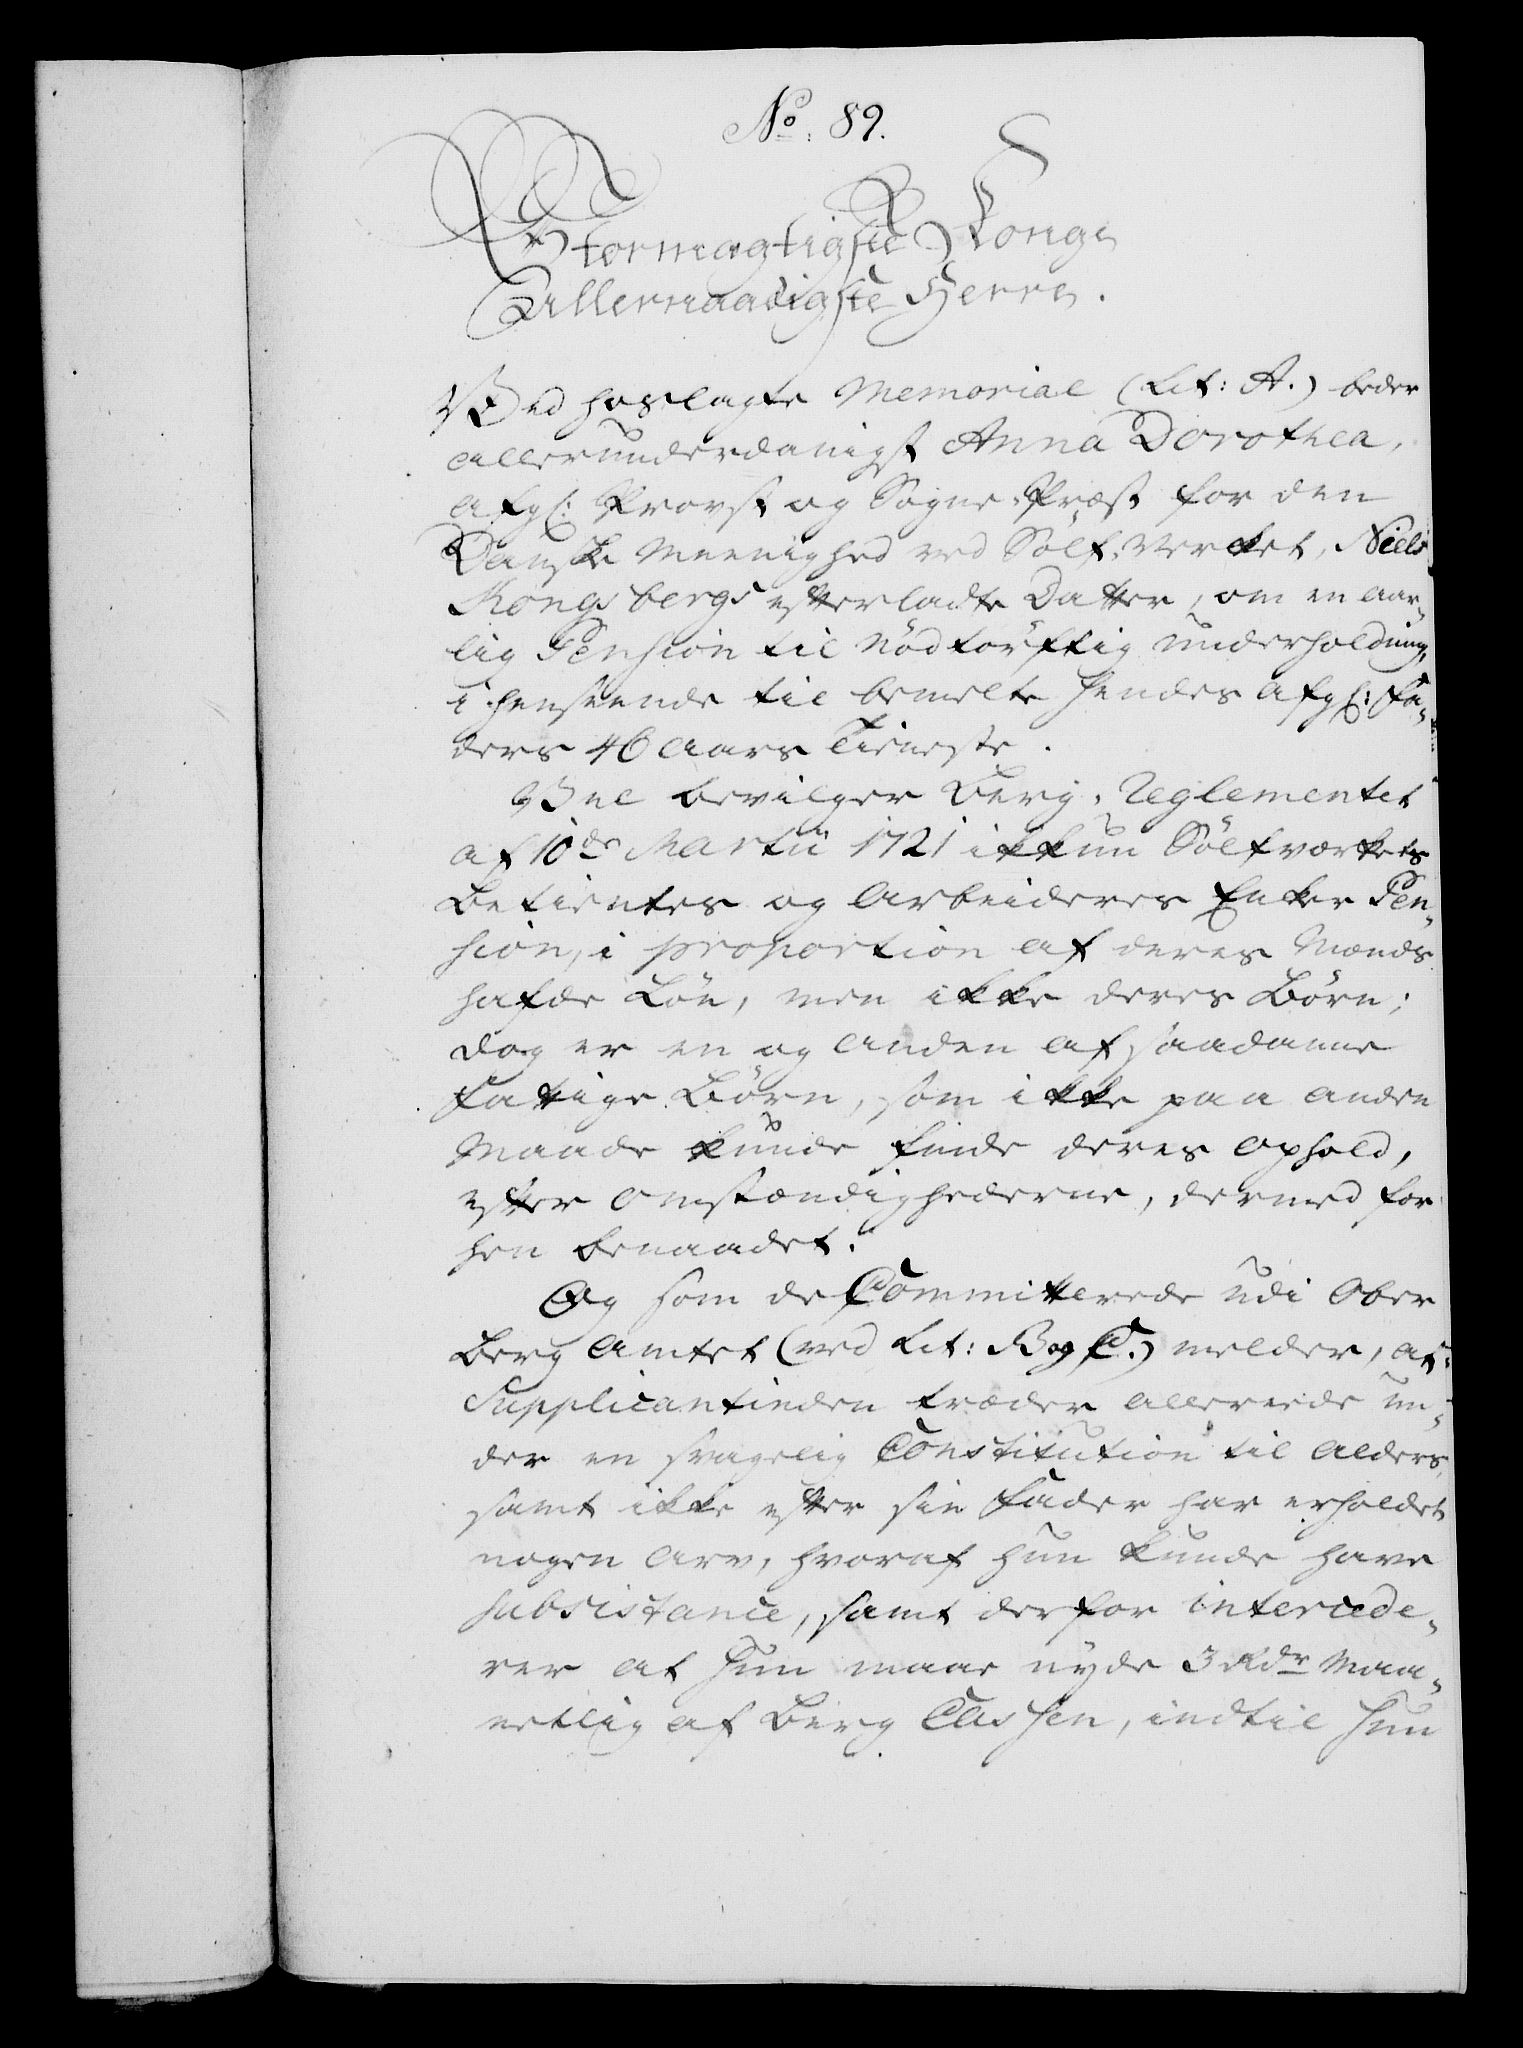 No. 89.
Stormægtigste Konge
Allernaadigste Herre.
Ved hoslagte Memorial (Lit: A.) beder
allerunderdanigst Anna Dorothea,
afg: Provst og Sogne-Præst for den
Danske Meenighed ved Sölf-Verket, Niels
Kongsbergs efterladte Datter, om en aar-
lig Pension til nödtörftig underholdning,
i henseende til bemelte hendes afg: Fa-
ders 46 Aars Tieneste.
Vel bevilger Berg-Reglementet
af 10de Martii 1721 ikkun Sölfværkets
Betientes og Arbeideres Enker Pen-
sion, i proportion af deres Mænds
hafde Lön, men ikke deres Börn;
dog er en og anden af saadanne
fattige Börn, som ikke paa anden
Maade kunde finde deres Ophold,
efter Omstændighederne, dermed for
hen benaadet.
Og som de Committerede udi Ober
Berg Amtet (ved Lit: B og C.) melder, at
Supplicantinden træder allereede un-
der en svagelig Constitution til Alders,
samt ikke efter sin Fader har erholdet
nogen Arv, hvoraf hun kunde have
Subsistance, samt derfor intercede-
rer at hun maae nyde 3 Rdr Maa-
netlig af Berg Cassen, indtil hun